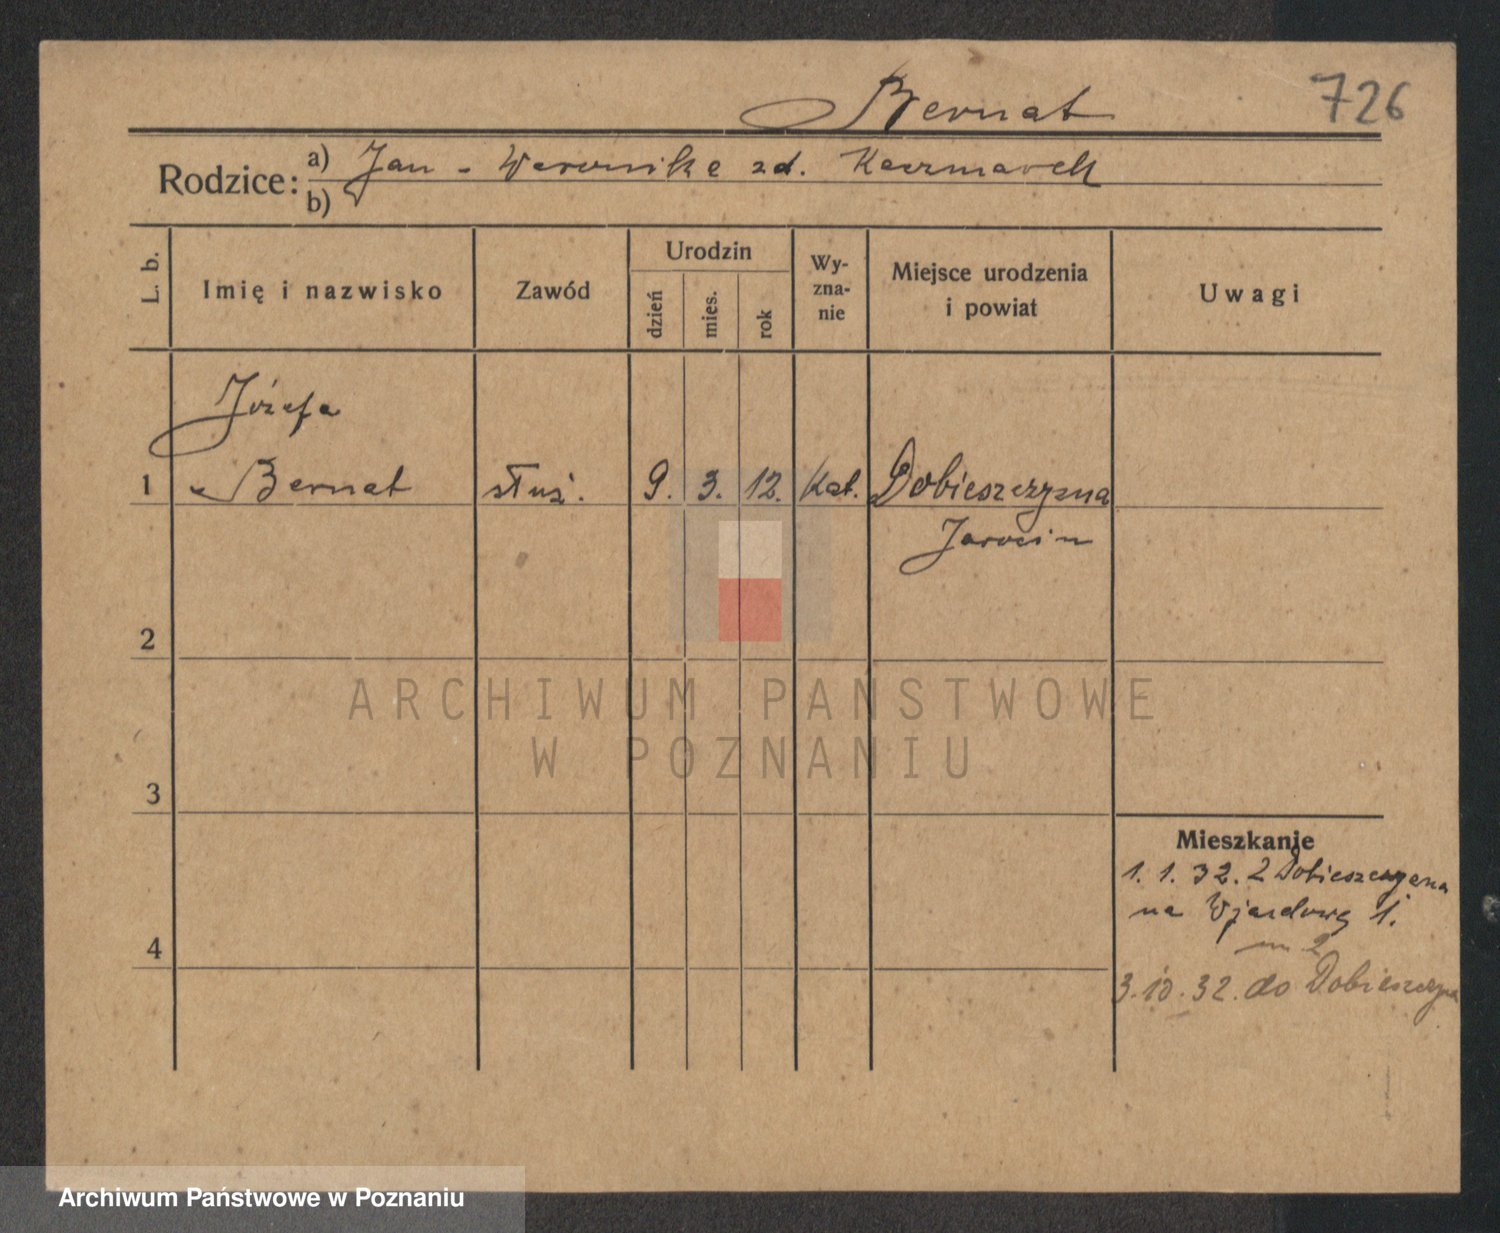 Bernat 726
Rodzice: a) Jan - Weronika zd. Kaczmarek
b)
L. b. Imię i nazwisko Zawód Urodzin dzień mies. rok Wyznanie Miejsce urodzenia i powiat Uwagi
Józefa
1 Bernat służ. 9. 3. 12. Kat. Dobieszczyzna
Jarocin
2
ARCHIWUM PAŃSTWOWE
W POZNANIU
3
Mieszkanie
1. 1. 32. z Dobieszczyzna
na Wjazdową 1.
4
m 2
3. 10. 32. do Dobieszczyzna
Archiwum Państwowe w Poznaniu